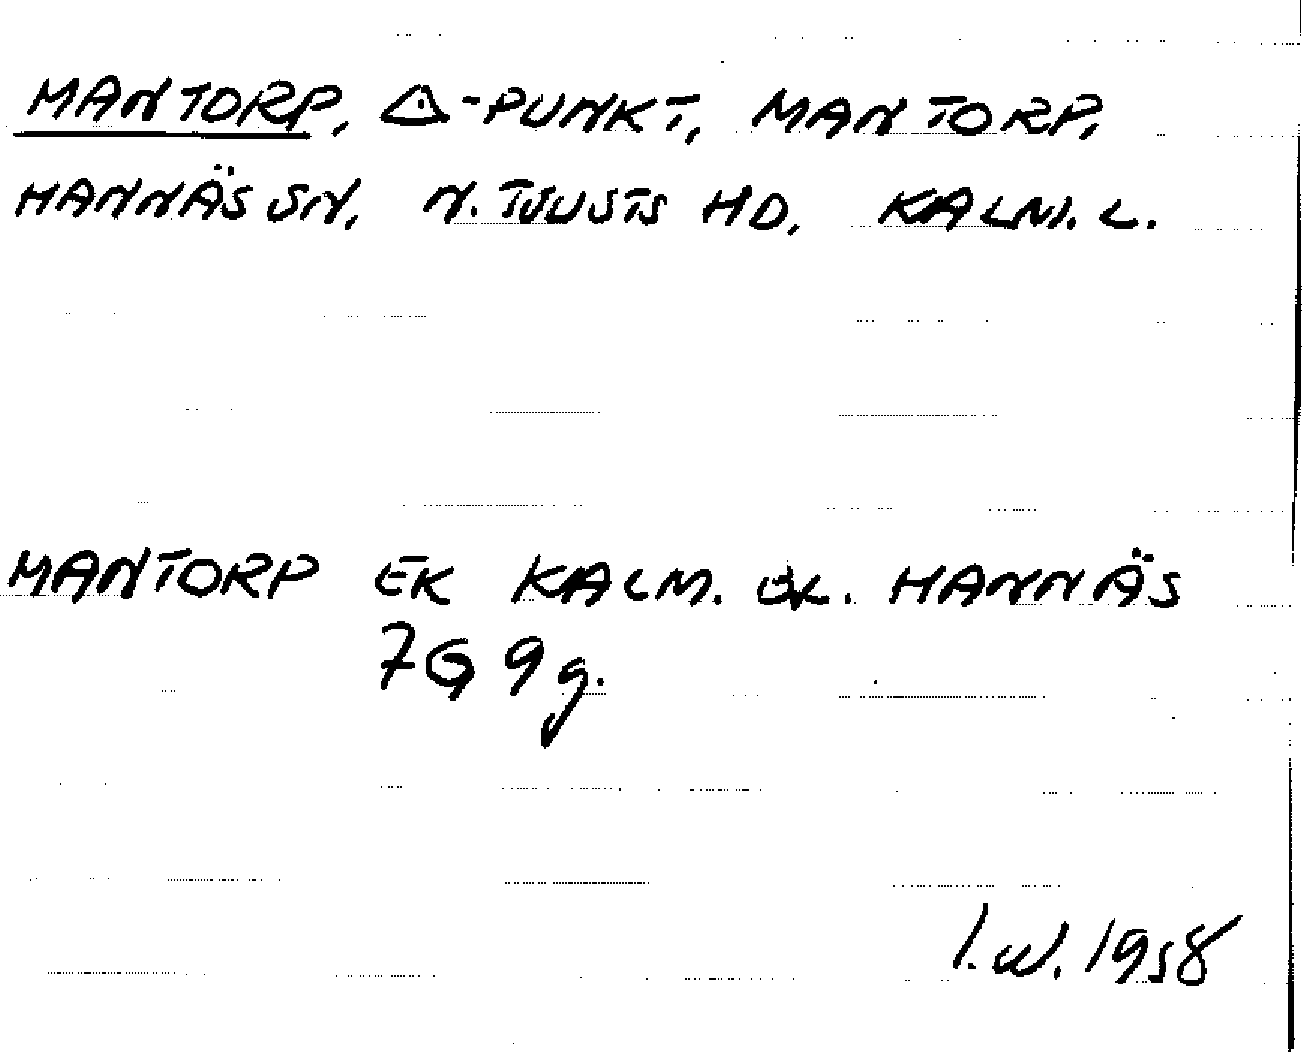 MANTORP, △-PUNKT, MANTORP,
HANNÄS SN, N. TJUSTS HD, KALM. L.
MANTORP EK KALM. ÖK. HANNÄS
7G 9g.
I.W. 1958